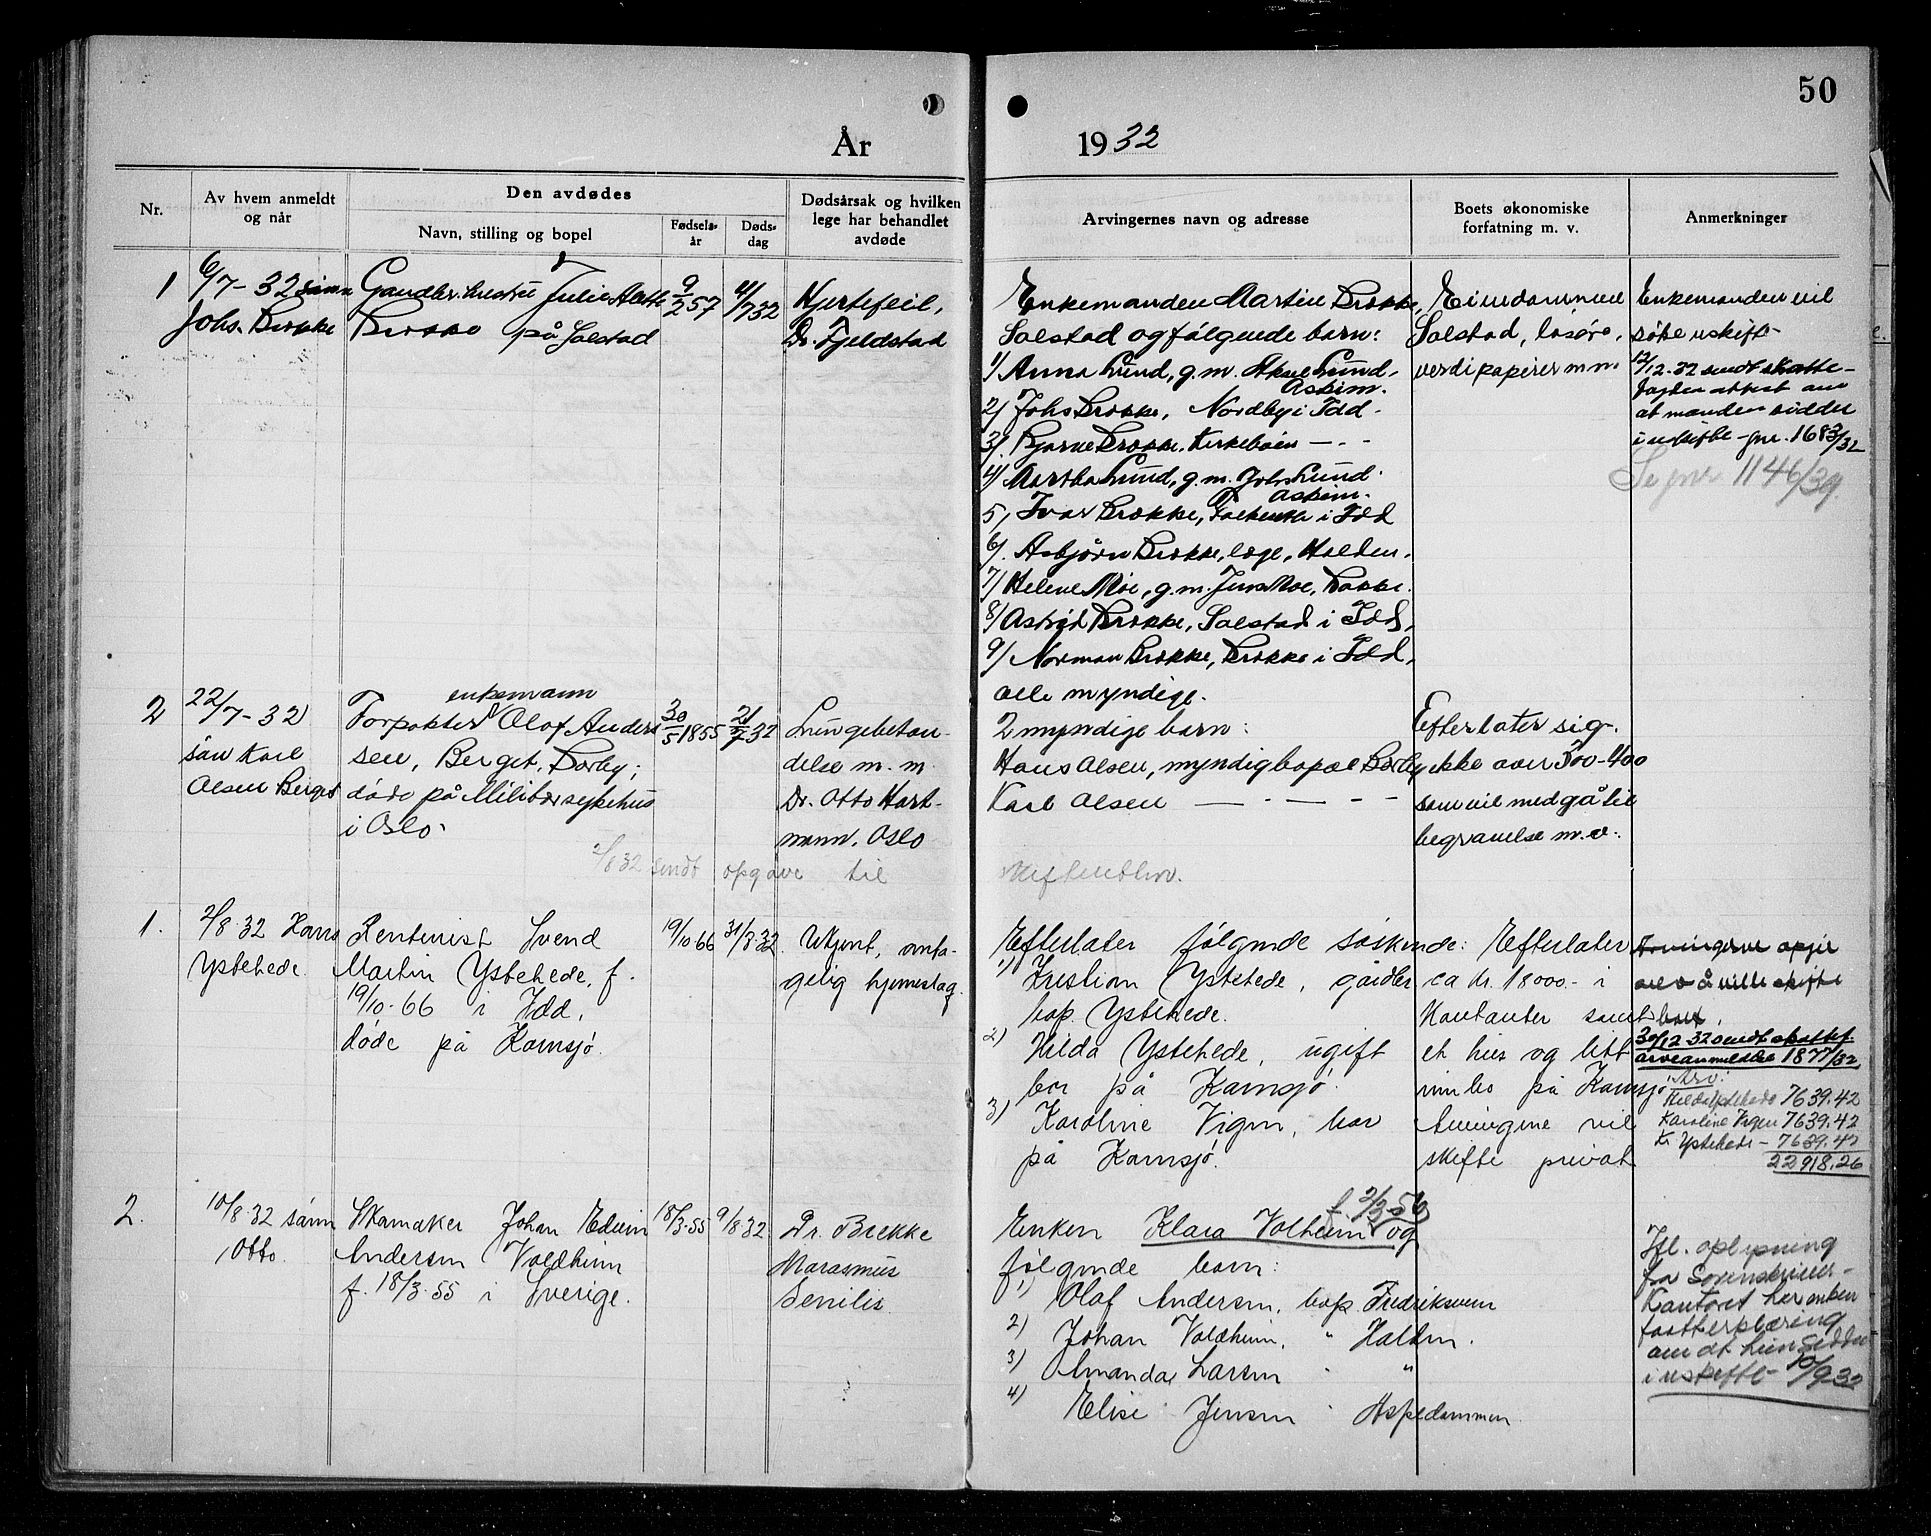 50
År
1932
Nr.
Av hvem anmeldt og når
Den avdødes
Navn, stilling og bopel
Fødsels-år
Døds-dag
Dødsårsak og hvilken lege har behandlet avdøde
Arvingernes navn og adresse
Boets økonomiske forfatning m. v.
Anmerkninger
1
6/7-32 sønn
Johs. Brække
Julie
Brække på Solstad
9/2 57
4/7 32
Hjertefeil,
Dr. Fjeldstad
Enkemanden Martin Brække,
Solstad og følgende barn:
1) Anna Lund, g.m. Lund,
Askim.
2) Johs Brække, Nordby i Idd.
3) Bjarne Brække, Kirkebøen — . -
4) Martha Lund, g.m. Johs Lund
Askim.
5) Ivar Brække, i Idd
6) Asbjørn Brække, læge, Halden.
7) Helene Moe, g.m. Jens Moe, Bakke.
8) Astrid Brække, Solstad i Idd,
9) Norman Brække, Brække i Idd,
alle myndige.
Eiendommen
Solstad, løsøre,
verdipapirer m.m.
Enkemanden vil
søke uskifte-
12/12-32 sendt skatte-
fogden attest om
at manden sidder
i uskifte - jnr. 1683/32
Se jnr 1146/39.
2
22/7-32
søn Karl
Olsen Berget
enkemann
Forpakter Olof Ander
sen, Berget, Berby;
døde på Militærsykehus
i Oslo.
30/5 1855
21/7 32
Lungebetæn-
delse m.m.
Dr. Otto Hart-
mann, Oslo
2 myndige barn:
Hans Olsen, myndig bopæl Berby
Karl Olsen — . — - -
Efterlater sig
ikke over 300-400
som vil medgå til
begravelse m.v.
2/8 32 sendt opgave til
1.
2/8-32 Hans
Ystehede.
Rentenist Svend
Martin Ystehede, f.
19/10-66 i Idd,
døde på Kornsjø.
19/10 66
31/7.32
Ukjent, anta-
gelig hjerneslag.
Efterlater følgende søskende:
1) Kristian Ystehede, gårdbr
bop. Ystehede.
2) Hilda Ystehede, ugift
bor på Kornsjø.
3) Karoline Vigen, bor
på Kornsjø.
Efterlater
ca kr. 18000.- i
Kontanter samt
et hus og litt
innbo på Kornsjø
Arvingene vil
skifte privat
Arvingerne opgir
selv å ville skifte
boet.
30/12-32 sendt skattef.
arveanmeldelse 1877/32
Arv:
Hilda Ystehede 7639.42
Karoline Vigen 7639.42
Kr. Ystehede - 7639.42
22918.26
2.
10/8-32 sønn
Otto.
Skomaker Johan Edvin
Andersen Voldheim
f. 18/3-55 i Sverige.
18/3-55
9/8 32
Dr. Brekke
Marasmus
Senilis
f. 2/3 56
Enken Klara Volheim og
følgende barn:
1) Olaf Andersen, bop. Fredriksvern
2) Johan Voldheim, " Halden.
3) Amanda Larsen " "
4) Elise Jensen " Aspedammen.
Ifl. oplysning
fra Sorenskriver-
Kontoret har enken
om at hun sidder
i uskifte 10/9 32